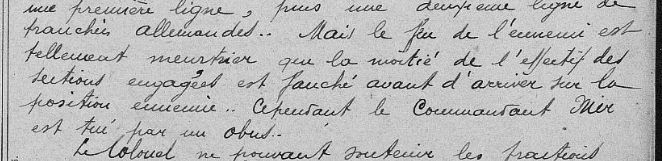 une première ligne, puis une deuxième ligne de
tranchés allemandes.. Mais le feu de l'ennemi est
tellement meurtrier que la moitié de l'effectif des
sections engagées est fauché avant d'arriver sur la
position ennemie.. Cependant le Commandant Mer
est tué par un obus..
Le Colonel ne pouvant soutenir les fractions